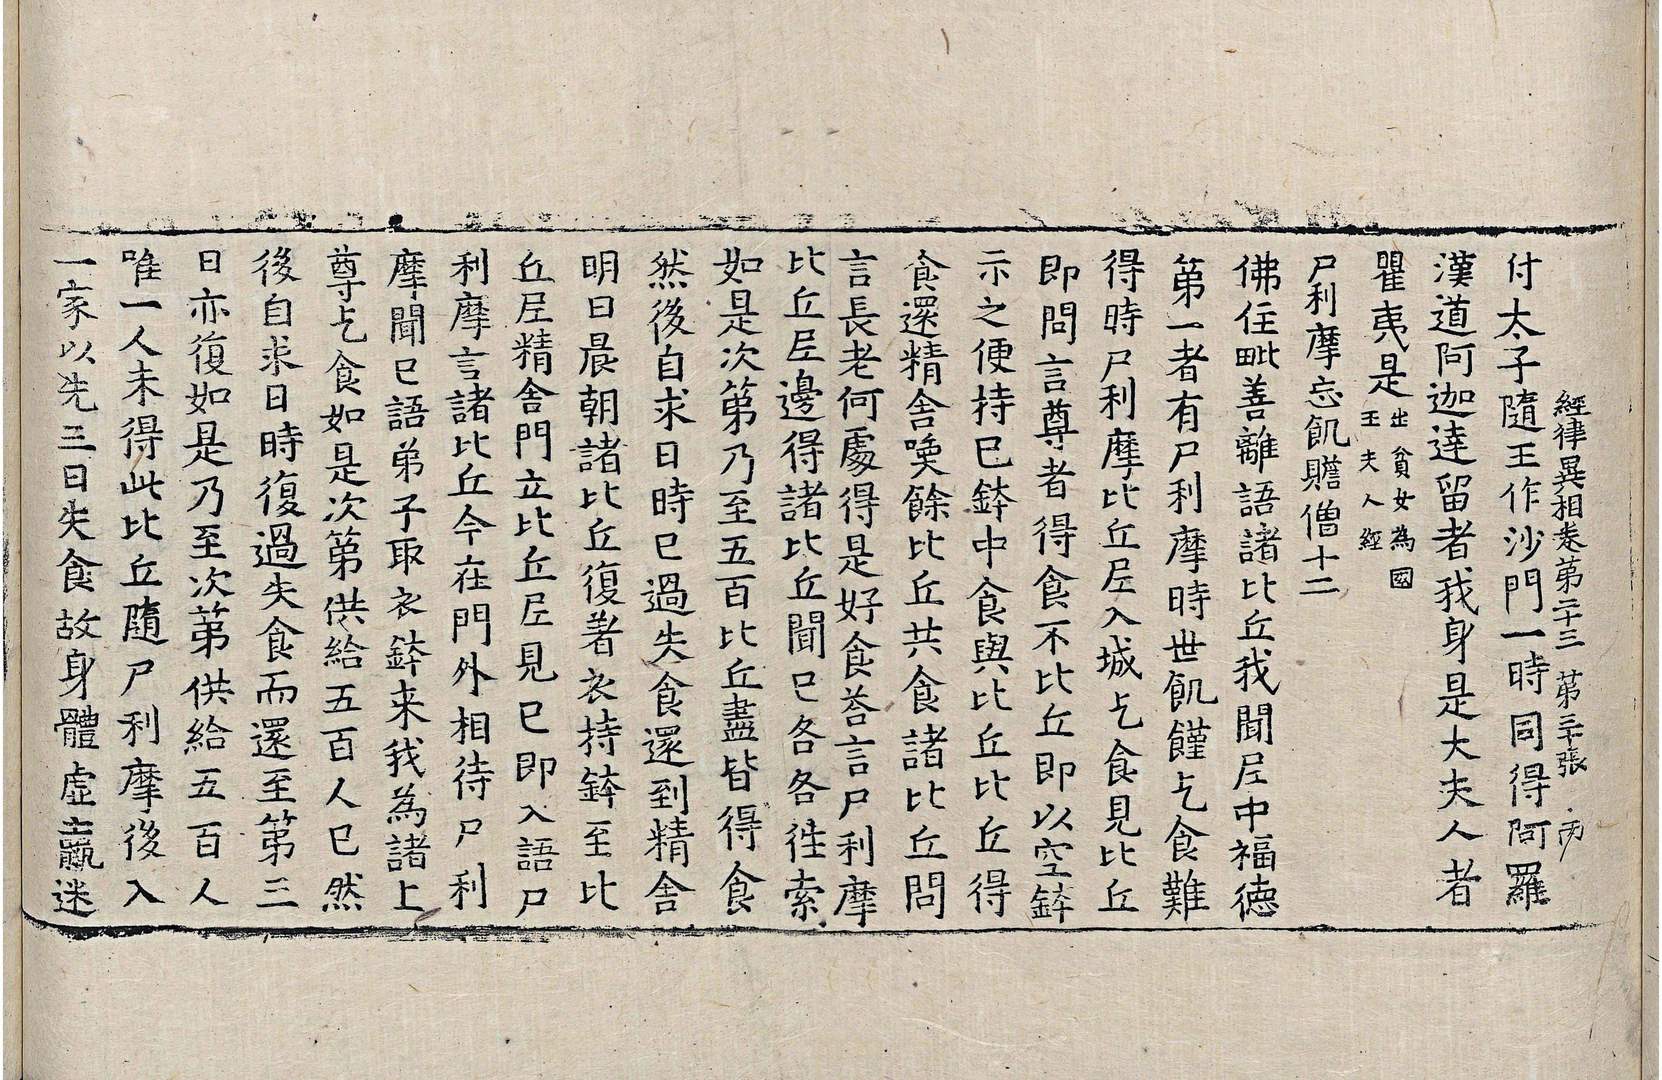 經律異相卷第二十三 第二十張 丙
付太子隨王作沙門一時同得阿羅
漢道阿迦達留者我身是大夫人者
瞿夷是出貧女為國王夫人經
尸利摩忘飢贍僧十二
佛住毗善離語諸比丘我聞尼中福德
第一者有尸利摩時世飢饉乞食難
得時尸利摩比丘尼入城乞食見比丘
即問言尊者得食不比丘即以空鉢
示之便持已鉢中食與比丘比丘得
食還精舍喚餘比丘共食諸比丘問
言長老何處得是好食荅言尸利摩
比丘尼邊得諸比丘聞已各各往索
如是次第乃至五百比丘盡皆得食
然後自求日時已過失食還到精舍
明日晨朝諸比丘復著衣持鉢至比
丘尼精舍門立比丘尼見已即入語尸
利摩言諸比丘今在門外相待尸利
摩聞已語弟子取衣鉢来我為諸上
尊乞食如是次第供給五百人已然
後自求日時復過失食而還至第三
日亦復如是乃至次第供給五百人
唯一人未得此比丘隨尸利摩後入
一家以先三日失食故身體虛羸迷